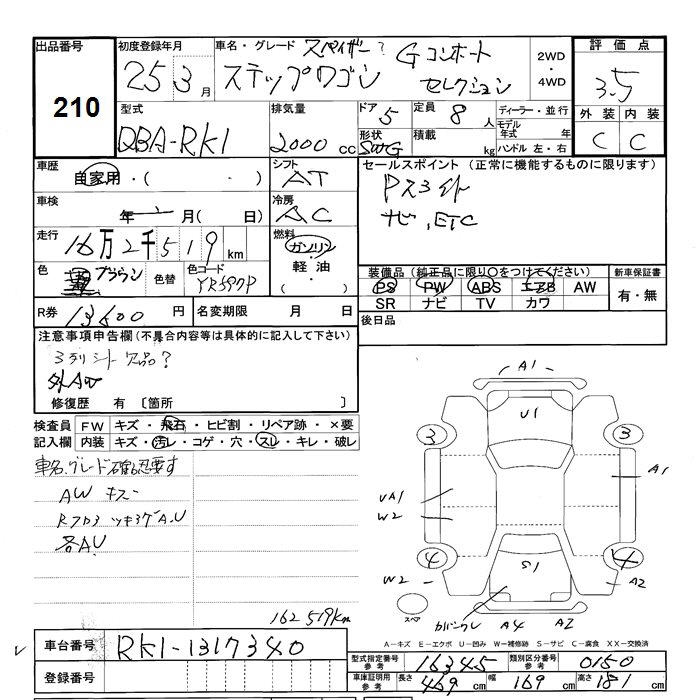 出品番号 210
初度登録年月 25 3月
車名・グレード スパイザー? Gコンホート
ステップワゴン セレクション
2WD・4WD
評価点 3.5
外装 内装
C C
型式 DBA-RK1
排気量 2000 cc
ドア 5 定員 8 人
形状 積載 kg
ディーラー・並行
モデル年式 年
ハンドル 左・右
車歴 自家用・( ・ )
シフト AT
セールスポイント (正常に機能するものに限ります)
Pスライド
ナビ,ETC
車検 年 月( 日)
冷房 AC
走行 16万2千519 km
燃料 ガソリン・軽油・( )
色 ブラウン 色替 色コード YR590P
装備品(純正品に限り○をつけてください)
PS PW ABS エアB AW
SR ナビ TV カワ
新車保証書 有・無
R券 13600 円 名変期限 月 日
後日品
注意事項申告欄(不具合内容等は具体的に記入して下さい)
3列シート欠品?
外AW
修復歴 有 〔箇所 〕
検査員記入欄 FW キズ・飛石・ヒビ割・リペア跡・×要
内装 キズ・汚レ・コゲ・穴・スレ・キレ・破レ
車名,グレード確認要す
AW キズ
各A.U
162519km
A1
U1
3 3
A1
UA1
W2
4 4
S1
W2 A2
スペア A4 A2
A-キズ E-エクボ U-凹み W-補修跡 S-サビ C-腐食 XX-交換済
車台番号 RK1-1317340
登録番号
型式指定番号 参考 16345 類別区分番号 参考 0150
車庫証明用 参考 長さ 469 cm 幅 169 cm 高さ 181 cm